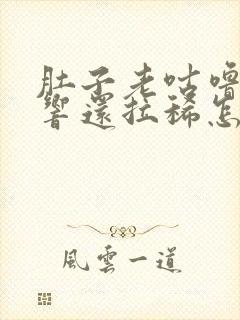 肚子老咕噜
響還拉稀怎
風雲一道